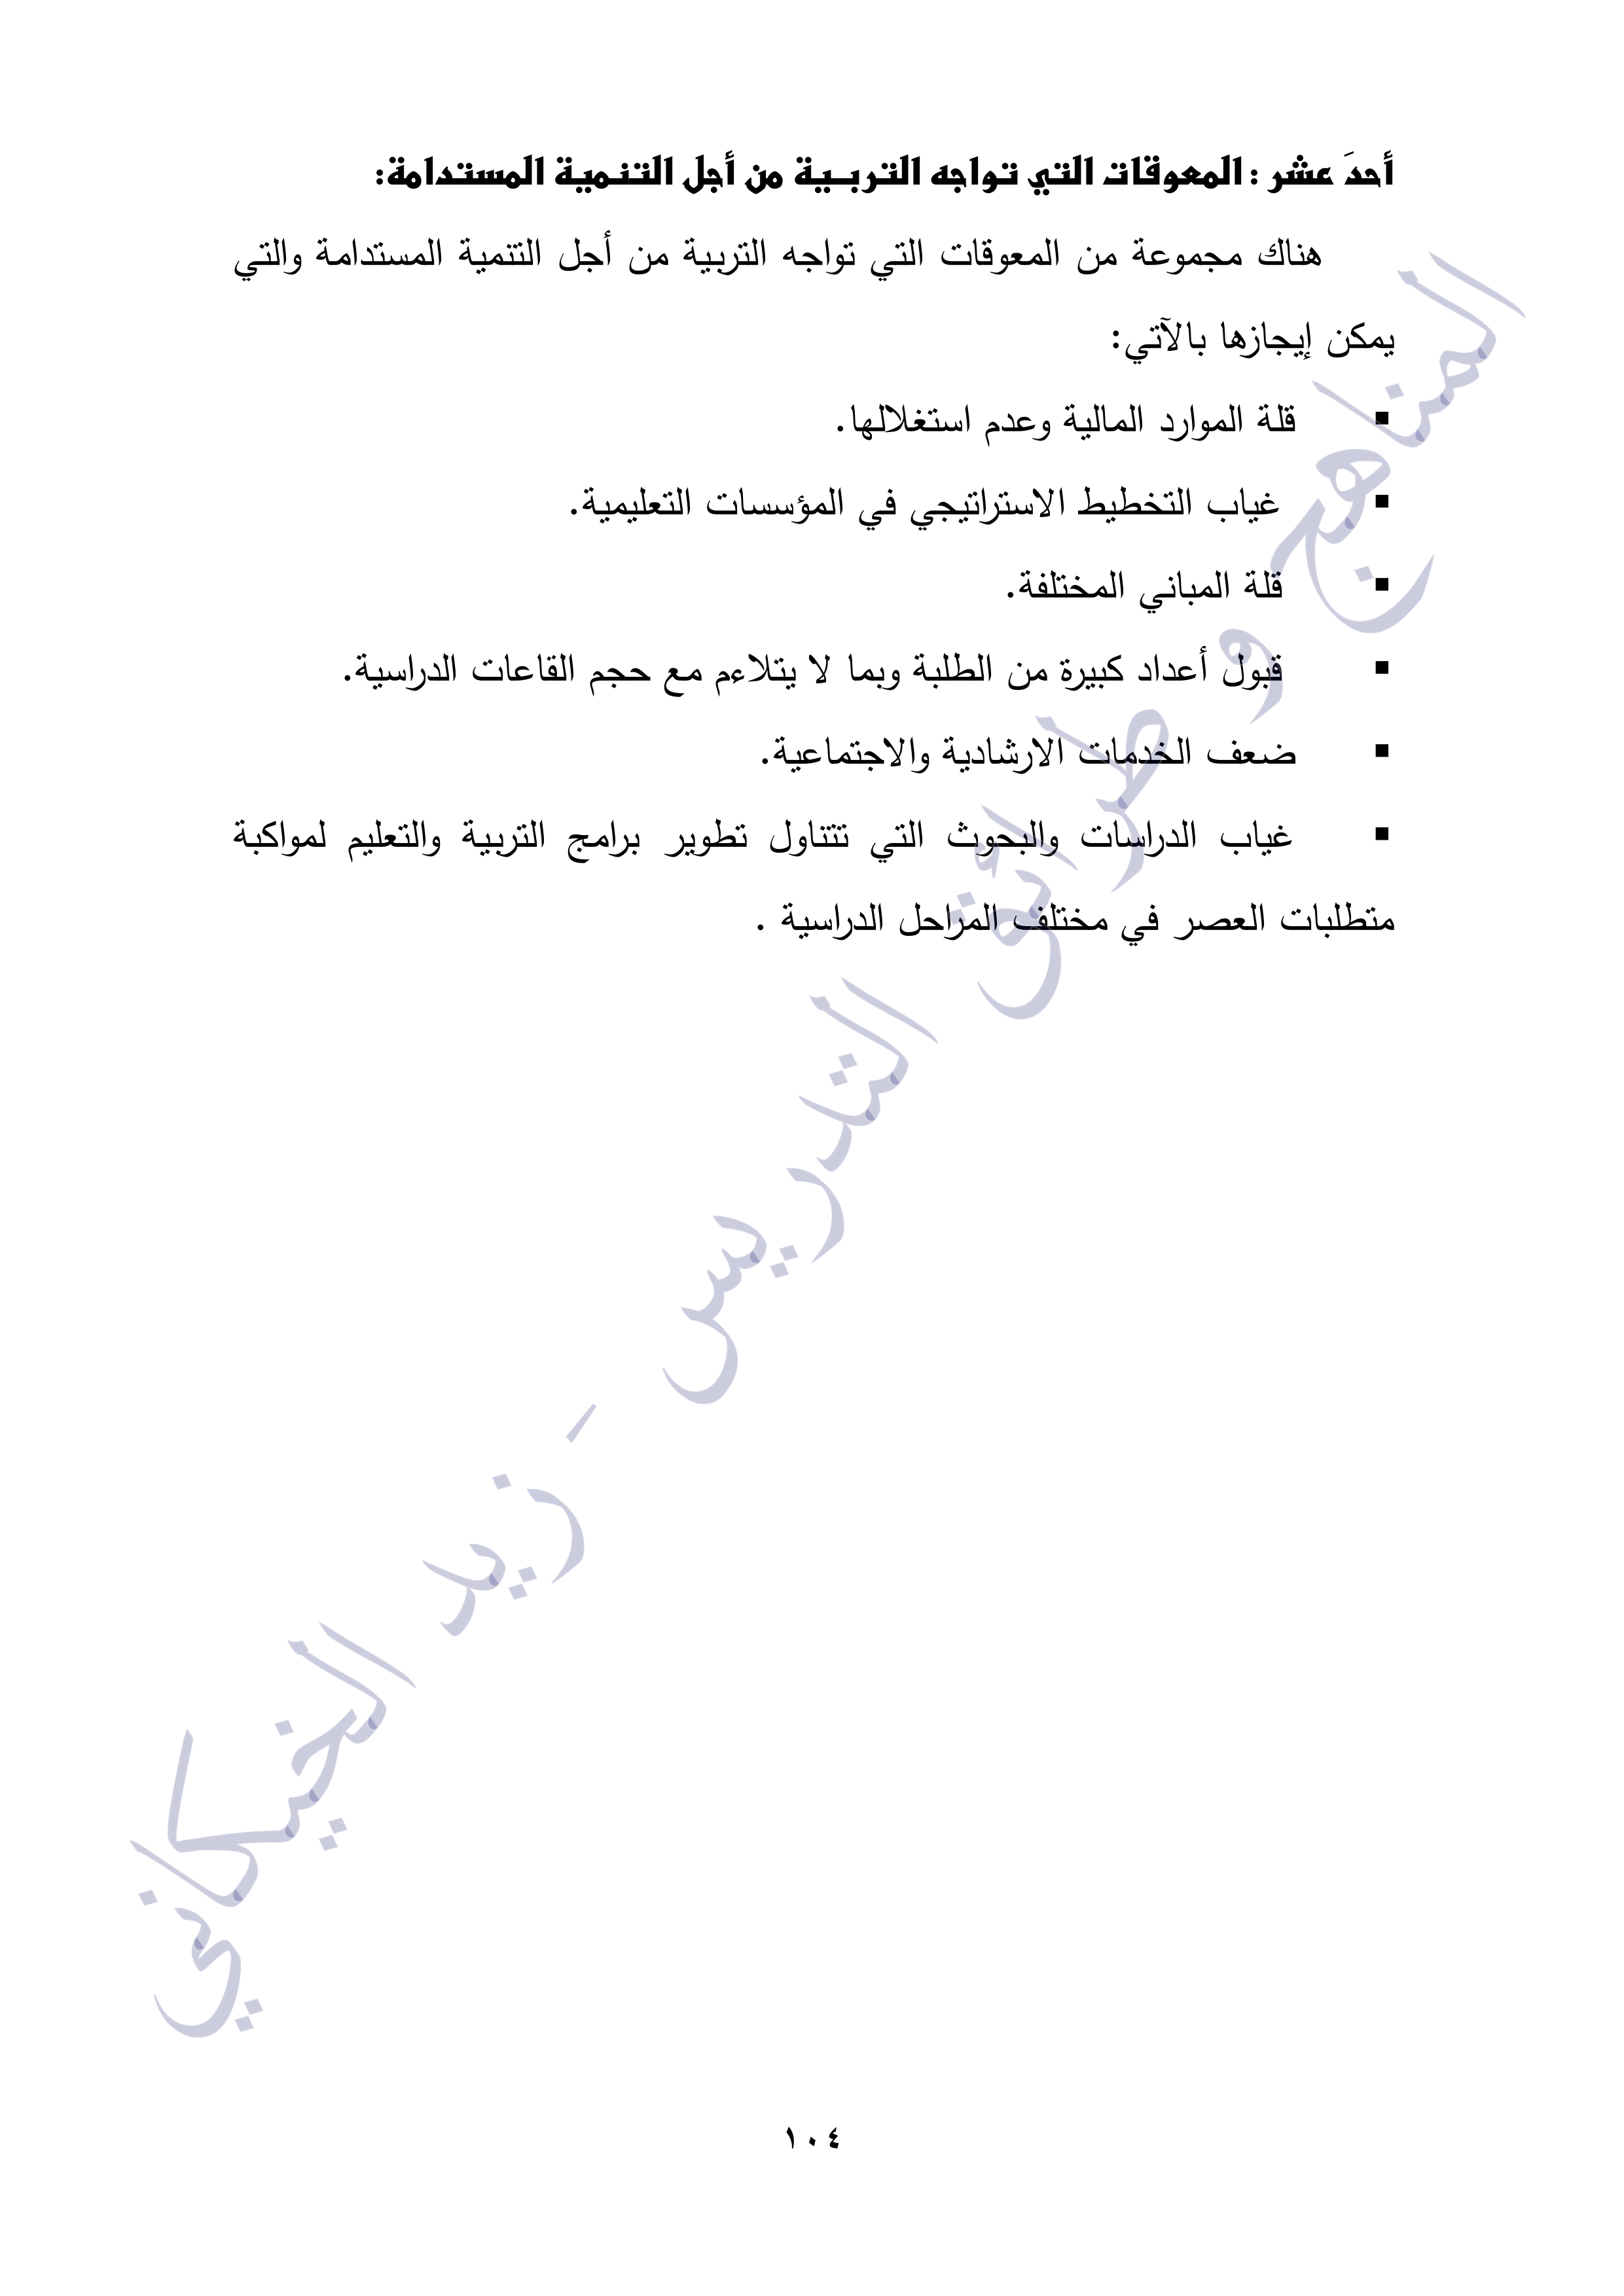 أحدَ عشر : المعوقات التي تواجه التربية من أجل التنمية المستدامة:
هناك مجموعة من المعوقات التي تواجه التربية من أجل التنمية المستدامة والتي
يمكن إيجازها بالآتي:
▪ قلة الموارد المالية وعدم استغلالها.
▪ غياب التخطيط الاستراتيجي في المؤسسات التعليمية.
▪ قلة المباني المختلفة.
▪ قبول أعداد كبيرة من الطلبة وبما لا يتلاءم مع حجم القاعات الدراسية.
▪ ضعف الخدمات الارشادية والاجتماعية.
▪ غياب الدراسات والبحوث التي تتناول تطوير برامج التربية والتعليم لمواكبة
متطلبات العصر في مختلف المراحل الدراسية .
المناهج و طرائق التدريس - زيد الخيكاني
١٠٤